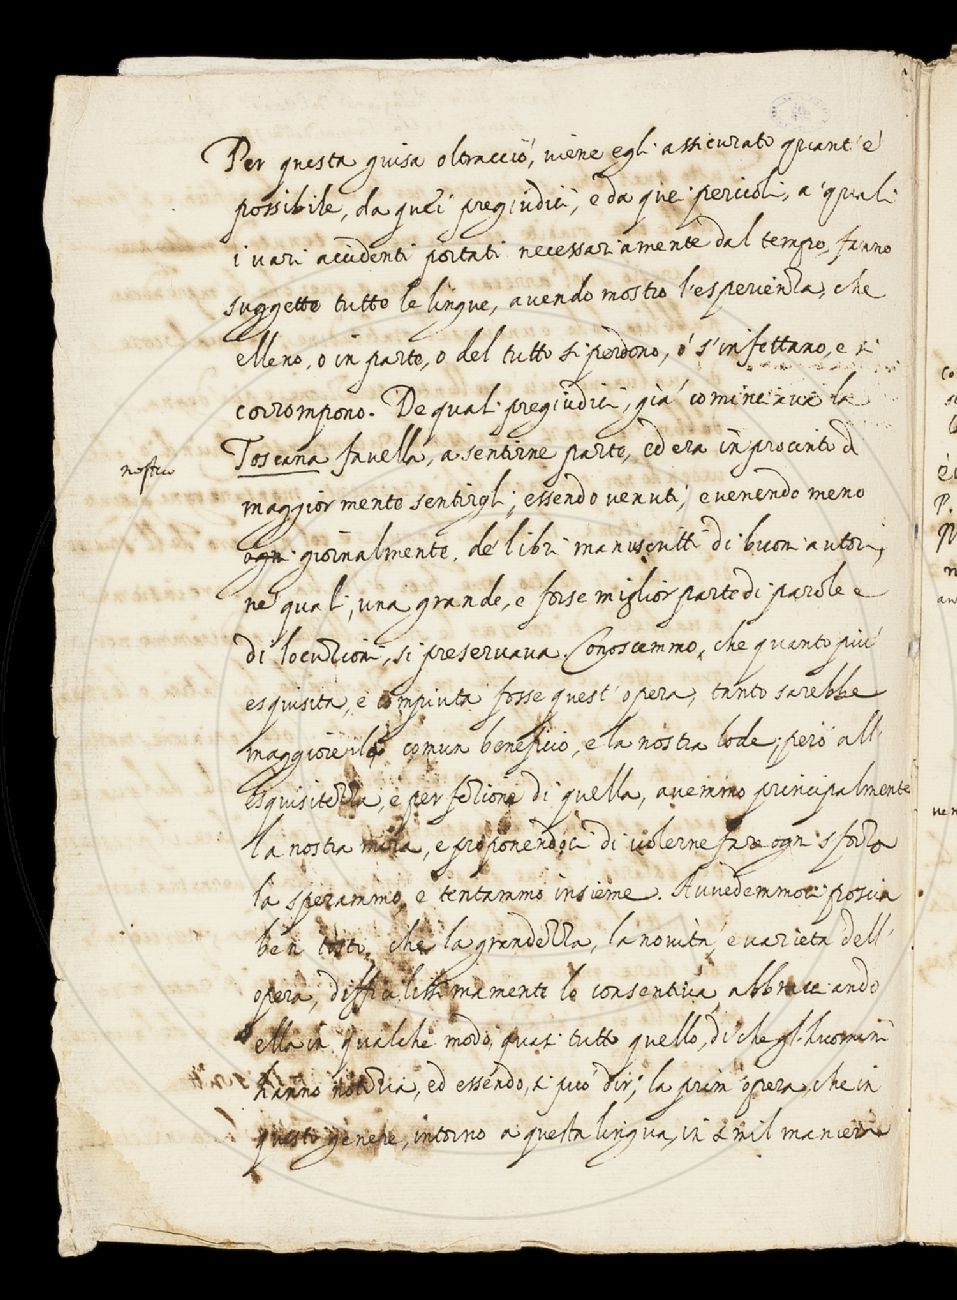 Per questa guisa oltracciò, viene egli assicurato quant'è
possibile, da quei pregiudici, e da quei pericoli, a' quali
i vari accidenti portati necessariamente dal tempo, fanno
suggette tutte le lingue, avendo mostro l'esperienza, che
elleno, o in parte, o del tutto si perdono, o s'infettano, e si
corrompono. De quali pregiudici, già cominciava la
nostra
Toscana favella, a sentirne parte, ed era in procinto di
maggiormente sentirgli; essendo venuti, e venendo meno
ogni giornalmente, de' libri manuscritti di buoni autori,
ne' quali, una grande, e forse miglior parte di parole e
di locuzioni, si preservava. Conoscemmo, che quanto più
esquisita, e compiuta fosse quest'opera, tanto sarebbe
maggiore il comun beneficio, e la nostra lode; però all'
esquisitezza, e perfezione di quella, avemmo principalmente
la nostra mira, e proponendoci di volerne fare ogni sforzo
la sperammo, e tentammo insieme. Avvedemmoci poscia
ben tosto, che la grandezza, la novità, e varietà dell'
opera, difficilissimamente lo consentiva, abbracciando
ella in qualche modo, quasi tutto quello, di che gl'huomini
hanno notizia, ed essendo, si può dir, la prim'opera, che in
questo genere, intorno a questa lingua, in mil maniere